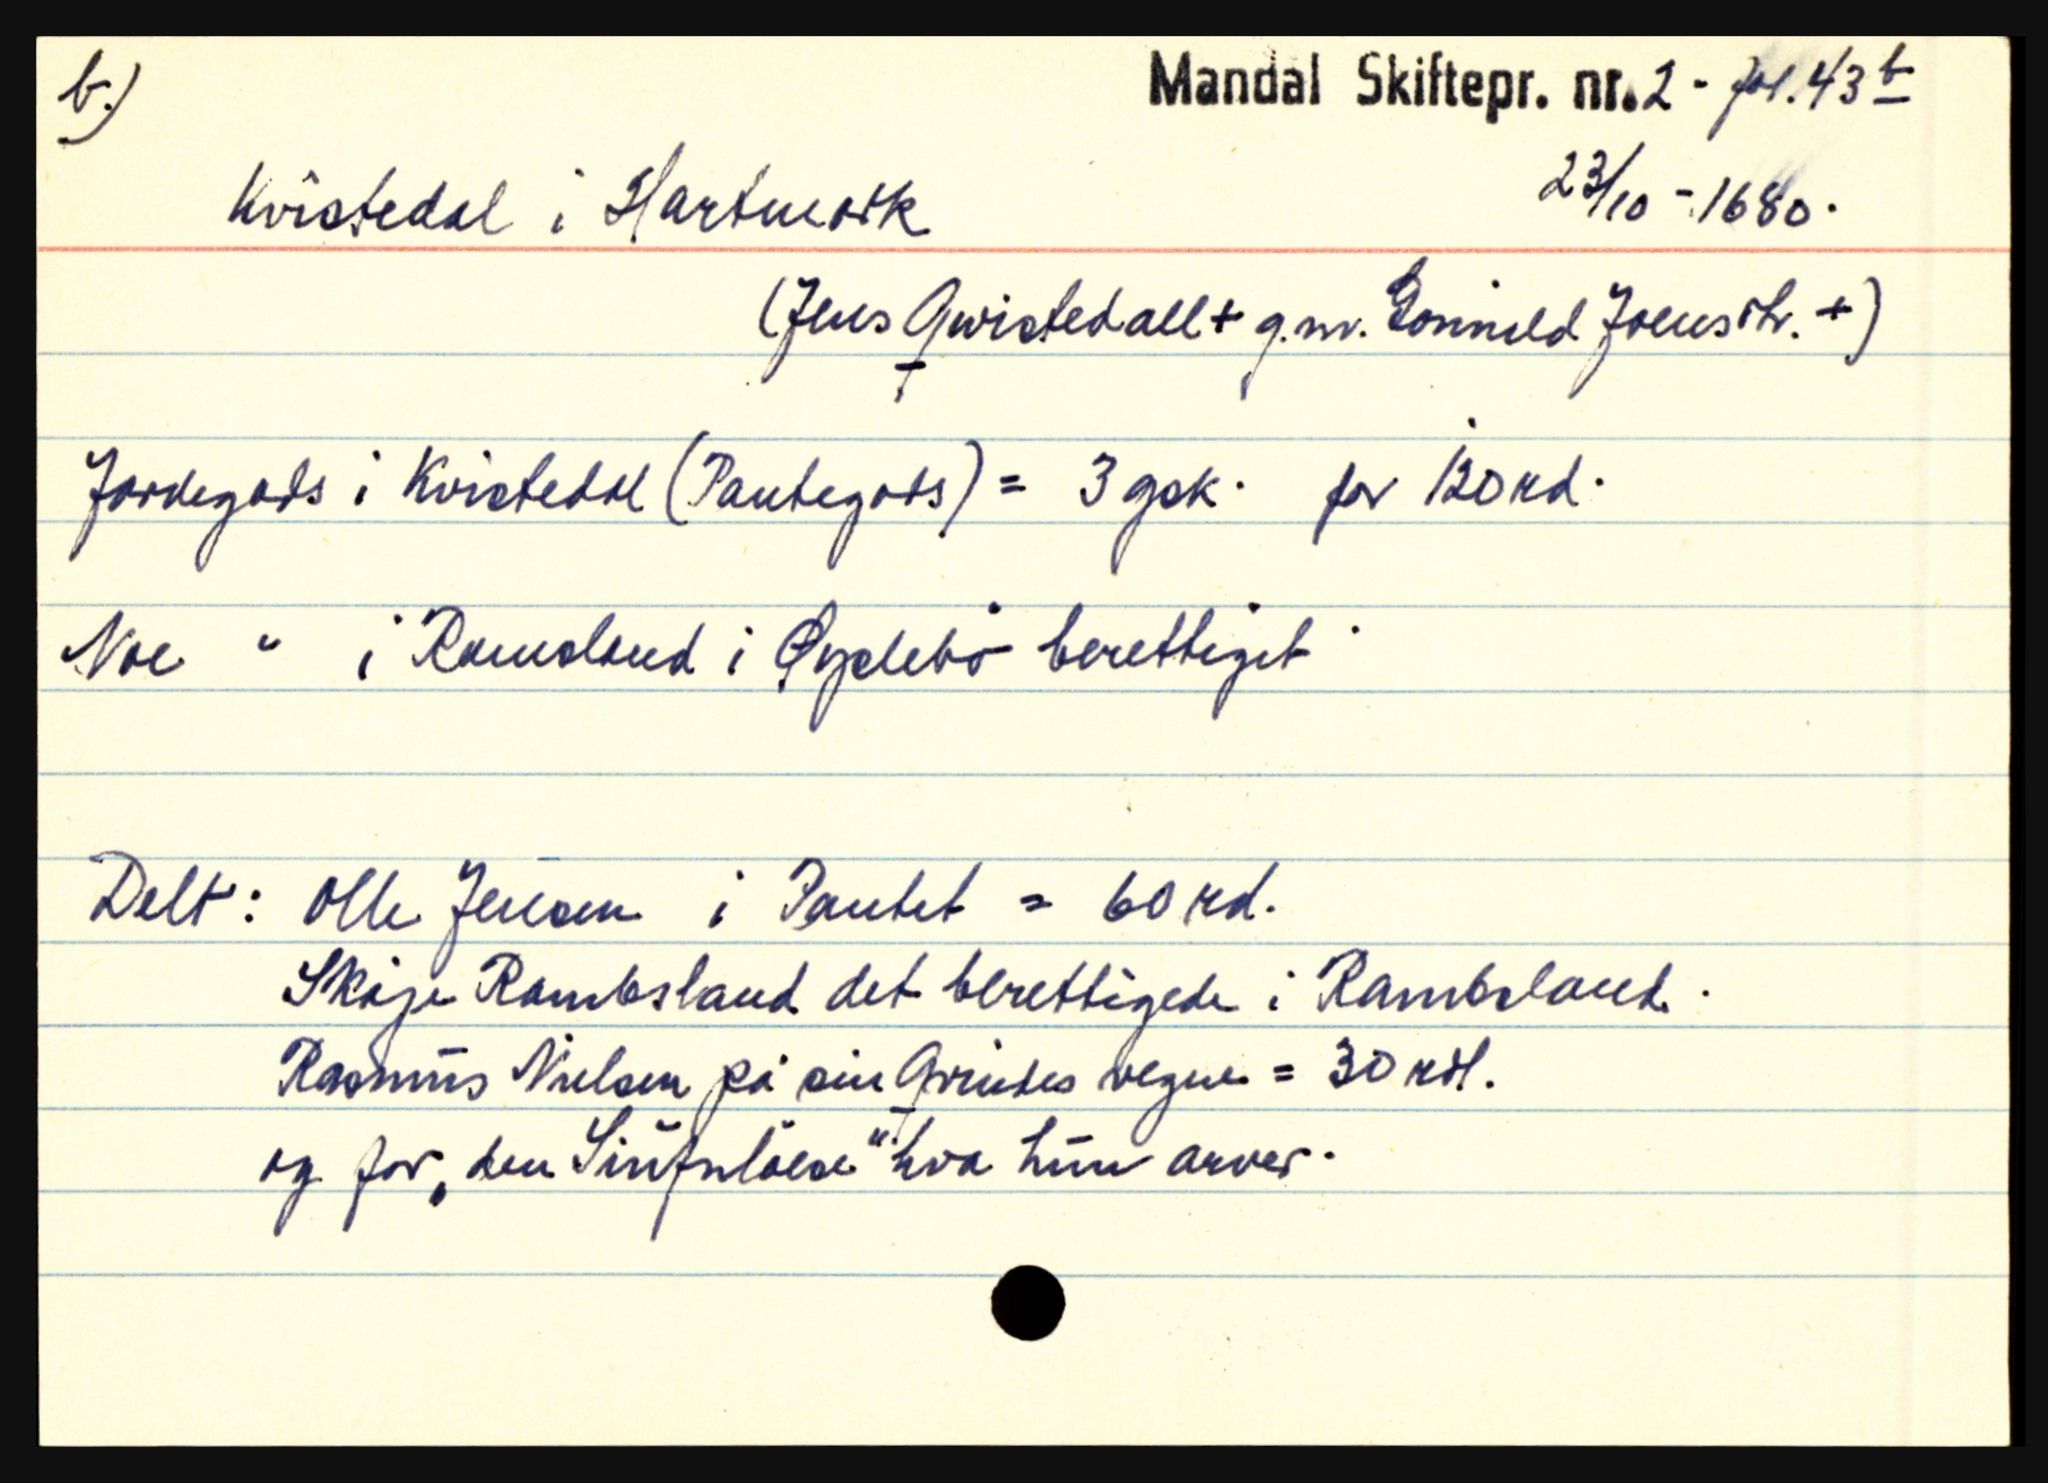 b.)
Mandal Skiftepr. nr. 2 - fol. 43 b
Kvistedal i Hartmark
23/10 - 1680.
(Jens Qwistedall + g.m. Gonnild Joensdtr. +)
Jordegods i Kvistedal (Pantegods) = 3 gsk. for 120 rd.
Noe " i Ramsland i Øyslebö berettiget
Delt: Olle Jensen i Pantet = 60 rd.
Skåje Rambsland det berettigede i Rambsland.
Rasmus Nielsen på sin Qvindes vegne = 30 rdl.
og for „den Sinfnlöese" hva hun arver.